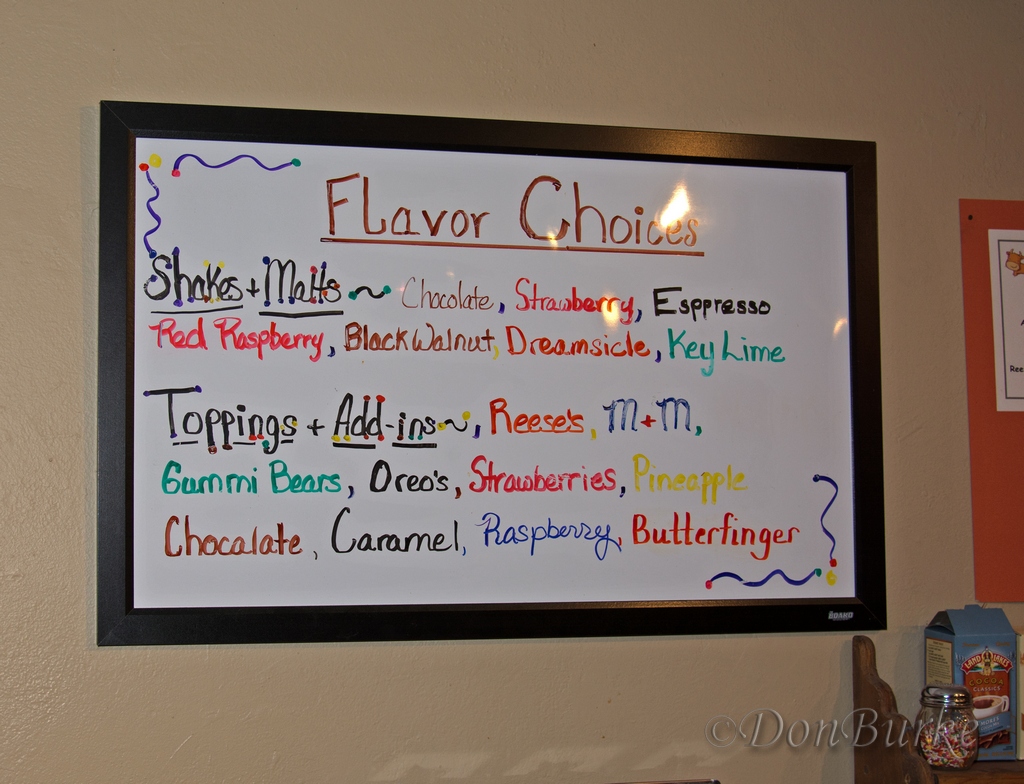 Flavor Choices
Shakes + Malts ~ Chocolate, Strawberry, Esppresso
Red Raspberry, Black Walnut, Dreamsicle, Key Lime
Toppings + Add-ins ~, Reese's, M+M,
Gummi Bears, Oreo's, Strawberries, Pineapple
Chocalate, Caramel, Raspberry, Butterfinger
BOARD
Ree
LAND O LAKES
COCOA
CLASSICS
©DonBurke